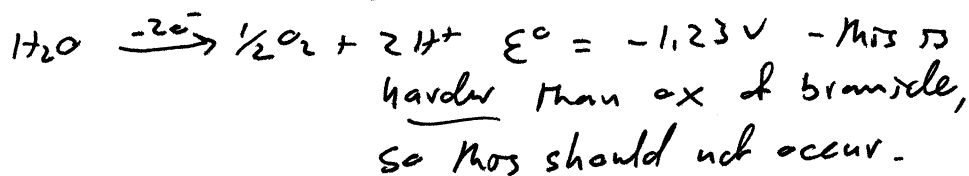 H₂O —-2e⁻→ ½O₂ + 2H⁺ ℰ° = -1.23 V - this is
harder than ox of bromide,
so this should not occur.